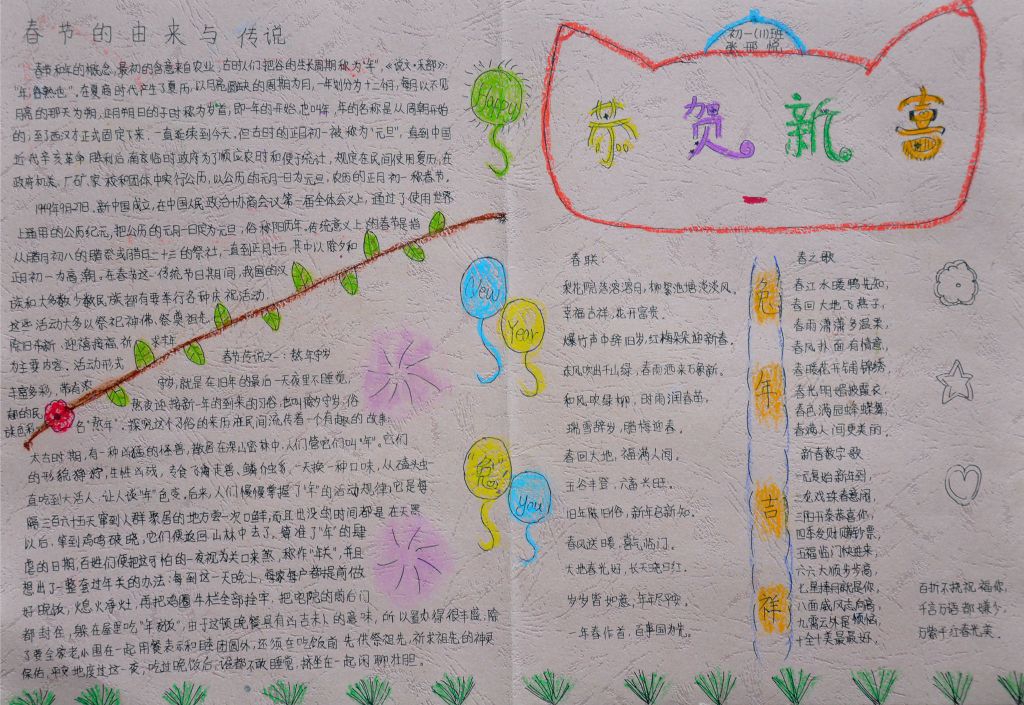 春节的由来与传说
春节和年的概念,最初的含意来自农业,古时人们把谷的生长周期称为"年",《说文·禾部》:
"年,谷熟也"。在夏商时代产生了夏历,以月亮圆缺的周期为月,一年划分为十二个月,每月以不见
月亮的那天为朔,正月朔日的子时称为岁首,即一年的开始,也叫年,年的名称是从周朝开始
的,到了西汉才正式固定下来,一直延续到今天,但古时的正月初一被称为"元旦",直到中国
近代辛亥革命胜利后,南京临时政府为了顺应农时和便于统计,规定在民间使用夏历,在
政府机关、厂矿、学校和团体中实行公历,以公历的元月一日为元旦,农历的正月初一称春节。
1949年9月27日,新中国成立,在中国人民政治协商会议第一届全体会议上,通过了使用世界
上通用的公历纪元,把公历的元月一日定为元旦,俗称阳历年。传统意义上的春节是指
从腊月初八的腊祭或腊月二十三的祭灶,一直到正月十五,其中以除夕和
正月初一为高潮。在春节这一传统节日期间,我国的汉
族和大多数少数民族都有要举行各种庆祝活动,
这些活动大多以祭祀神佛、祭奠祖先、
除旧布新、迎禧接福、祈求丰年
为主要内容。活动形式
丰富多彩,带有浓
郁的民
族色彩
春节传说之一:熬年守岁
守岁,就是在旧年的最后一天夜里不睡觉,
熬夜迎接新一年的到来的习俗,也叫除夕守岁,俗
名"熬年"。探究这个习俗的来历,在民间流传着一个有趣的故事:
太古时期,有一种凶猛的怪兽,散居在深山密林中,人们管它们叫"年"。它们
的形貌狰狞,生性凶残,专食飞禽走兽、鳞介虫豸,一天换一种口味,从磕头虫一
直吃到大活人,让人谈"年"色变。后来,人们慢慢掌握了"年"的活动规律,它是每
隔三百六十五天窜到人群聚居的地方尝一次口鲜,而且出没的时间都是在天黑
以后,等到鸡鸣破晓,它们便返回山林中去了。算准了"年"的肆
虐的日期,百姓们便把这可怕的一夜视为关口来煞,称作"年关",并且
想出了一整套过年关的办法:每到这一天晚上,每家每户都提前做
好晚饭,熄火净灶,再把鸡圈牛栏全部拴牢,把宅院的前后门
都封住,躲在屋里吃"年夜饭",由于这顿晚餐具有凶吉未卜的意味,所以置办得很丰盛,除
了要全家老小围在一起用餐表示和睦团圆外,还须在吃饭前先供祭祖先,祈求祖先的神灵
保佑,平安地度过这一夜,吃过晚饭后,谁都不敢睡觉,挤坐在一起闲聊壮胆。
Happy
New
Year
兔
You
初一(11)班
恭贺新喜
春联:
梨花院落溶溶月,柳絮池塘淡淡风。
幸福吉祥,花开富贵。
爆竹声声辞旧岁,红梅朵朵迎新春。
春风吹出千山绿,春雨洒来万象新。
和风吹绿柳,时雨润春苗。
瑞雪辞岁,腊梅迎春。
春回大地,福满人间。
五谷丰登,六畜兴旺。
旧年除旧俗,新年启新知。
春风送暖,喜气临门。
大地春光好,长天晓日红。
岁岁皆如意,年年尽平安。
一年春作首,百事国为先。
兔年吉祥
春之歌
春江水暖鸭先知,
春回大地飞燕子,
春雨潇潇多温柔,
春风扑面有情意,
春暖花开铺锦绣,
春光明媚披霞衣,
春色满园蜂蝶舞,
春满人间更美丽。
新春数字歌
一元复始新年到,
二龙戏珠春意闹,
三阳开泰恭喜你,
四季发财赚钞票,
五福临门快进来,
六六大顺步步高,
七星捧月就是你,
八面威风志向高,
九霄云外是烦恼,
十全十美最最好,
百折不挠祝福你,
千言万语都嫌少,
万紫千红春光美。